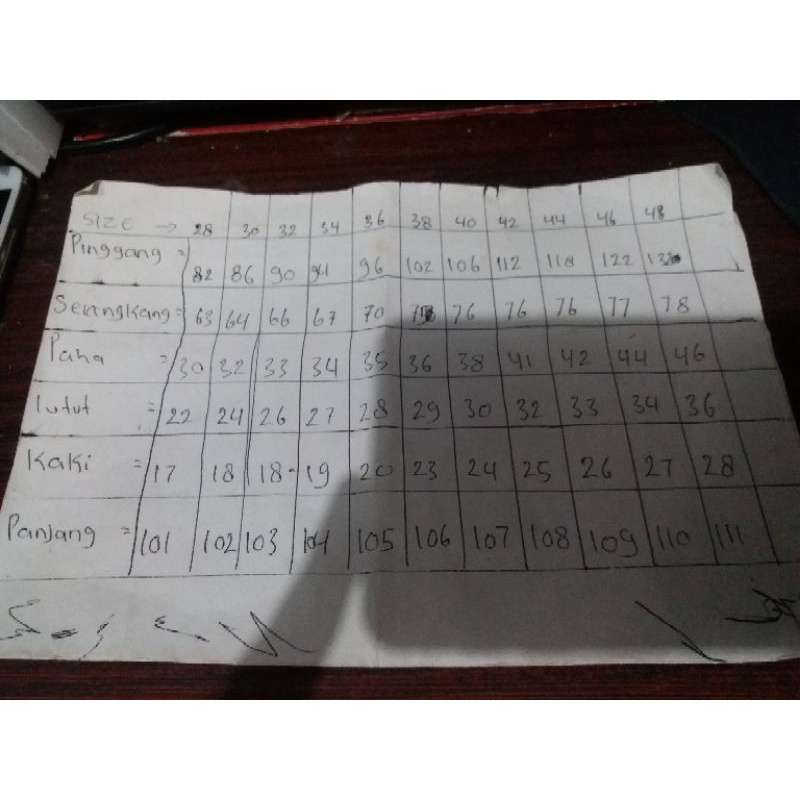 SIZE → 28 30 32 34 36 38 40 42 44 46 48
Pinggang = 82 86 90 94 96 102 106 112 118 122
Serangkang = 63 64 66 67 70 76 76 76 77 78
Paha = 30 32 33 34 35 36 38 41 42 44 46
lutut = 22 24 26 27 28 29 30 32 33 34 36
Kaki = 17 18 18 19 20 23 24 25 26 27 28
Panjang = 101 102 103 104 105 106 107 108 109 110 111